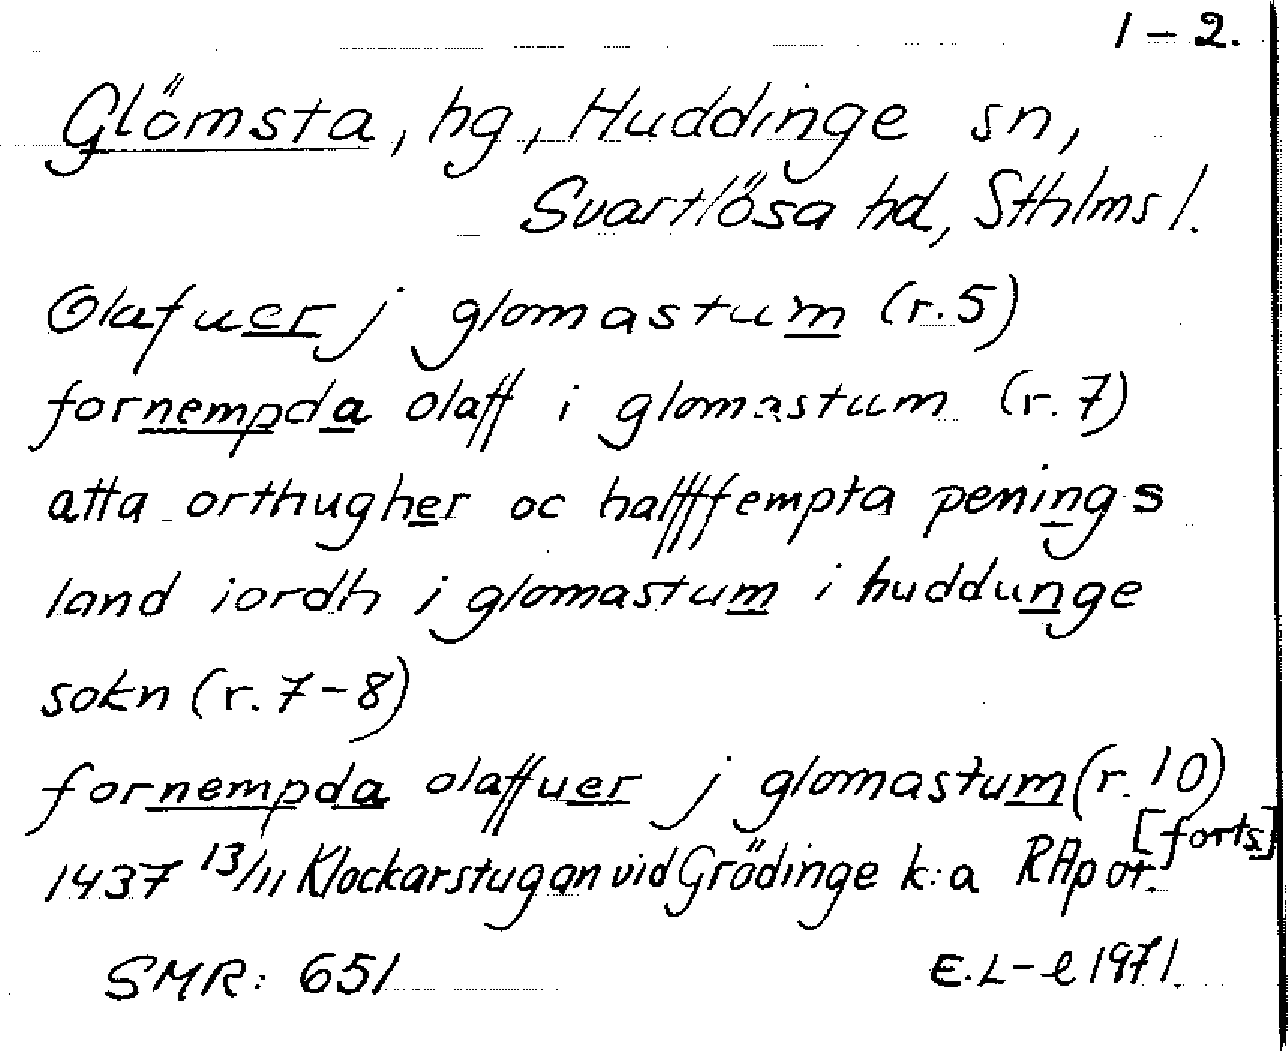 1-2.
Glömsta, hg, Huddinge sn,
Svartlösa hd, Sthlms l.
Olafuer j glomastum (r.5)
fornempda olaff i glomastum (r. 7)
atta orthugher oc halfffempta penings
land iordh i glomastum i huddunge
sokn (r. 7-8)
fornempda olaffuer j glomastum (r. 10)
[forts]
1437 13/11 Klockarstugan vid Grödinge k:a RAp or.
SMR: 651
E.L-l 1971.